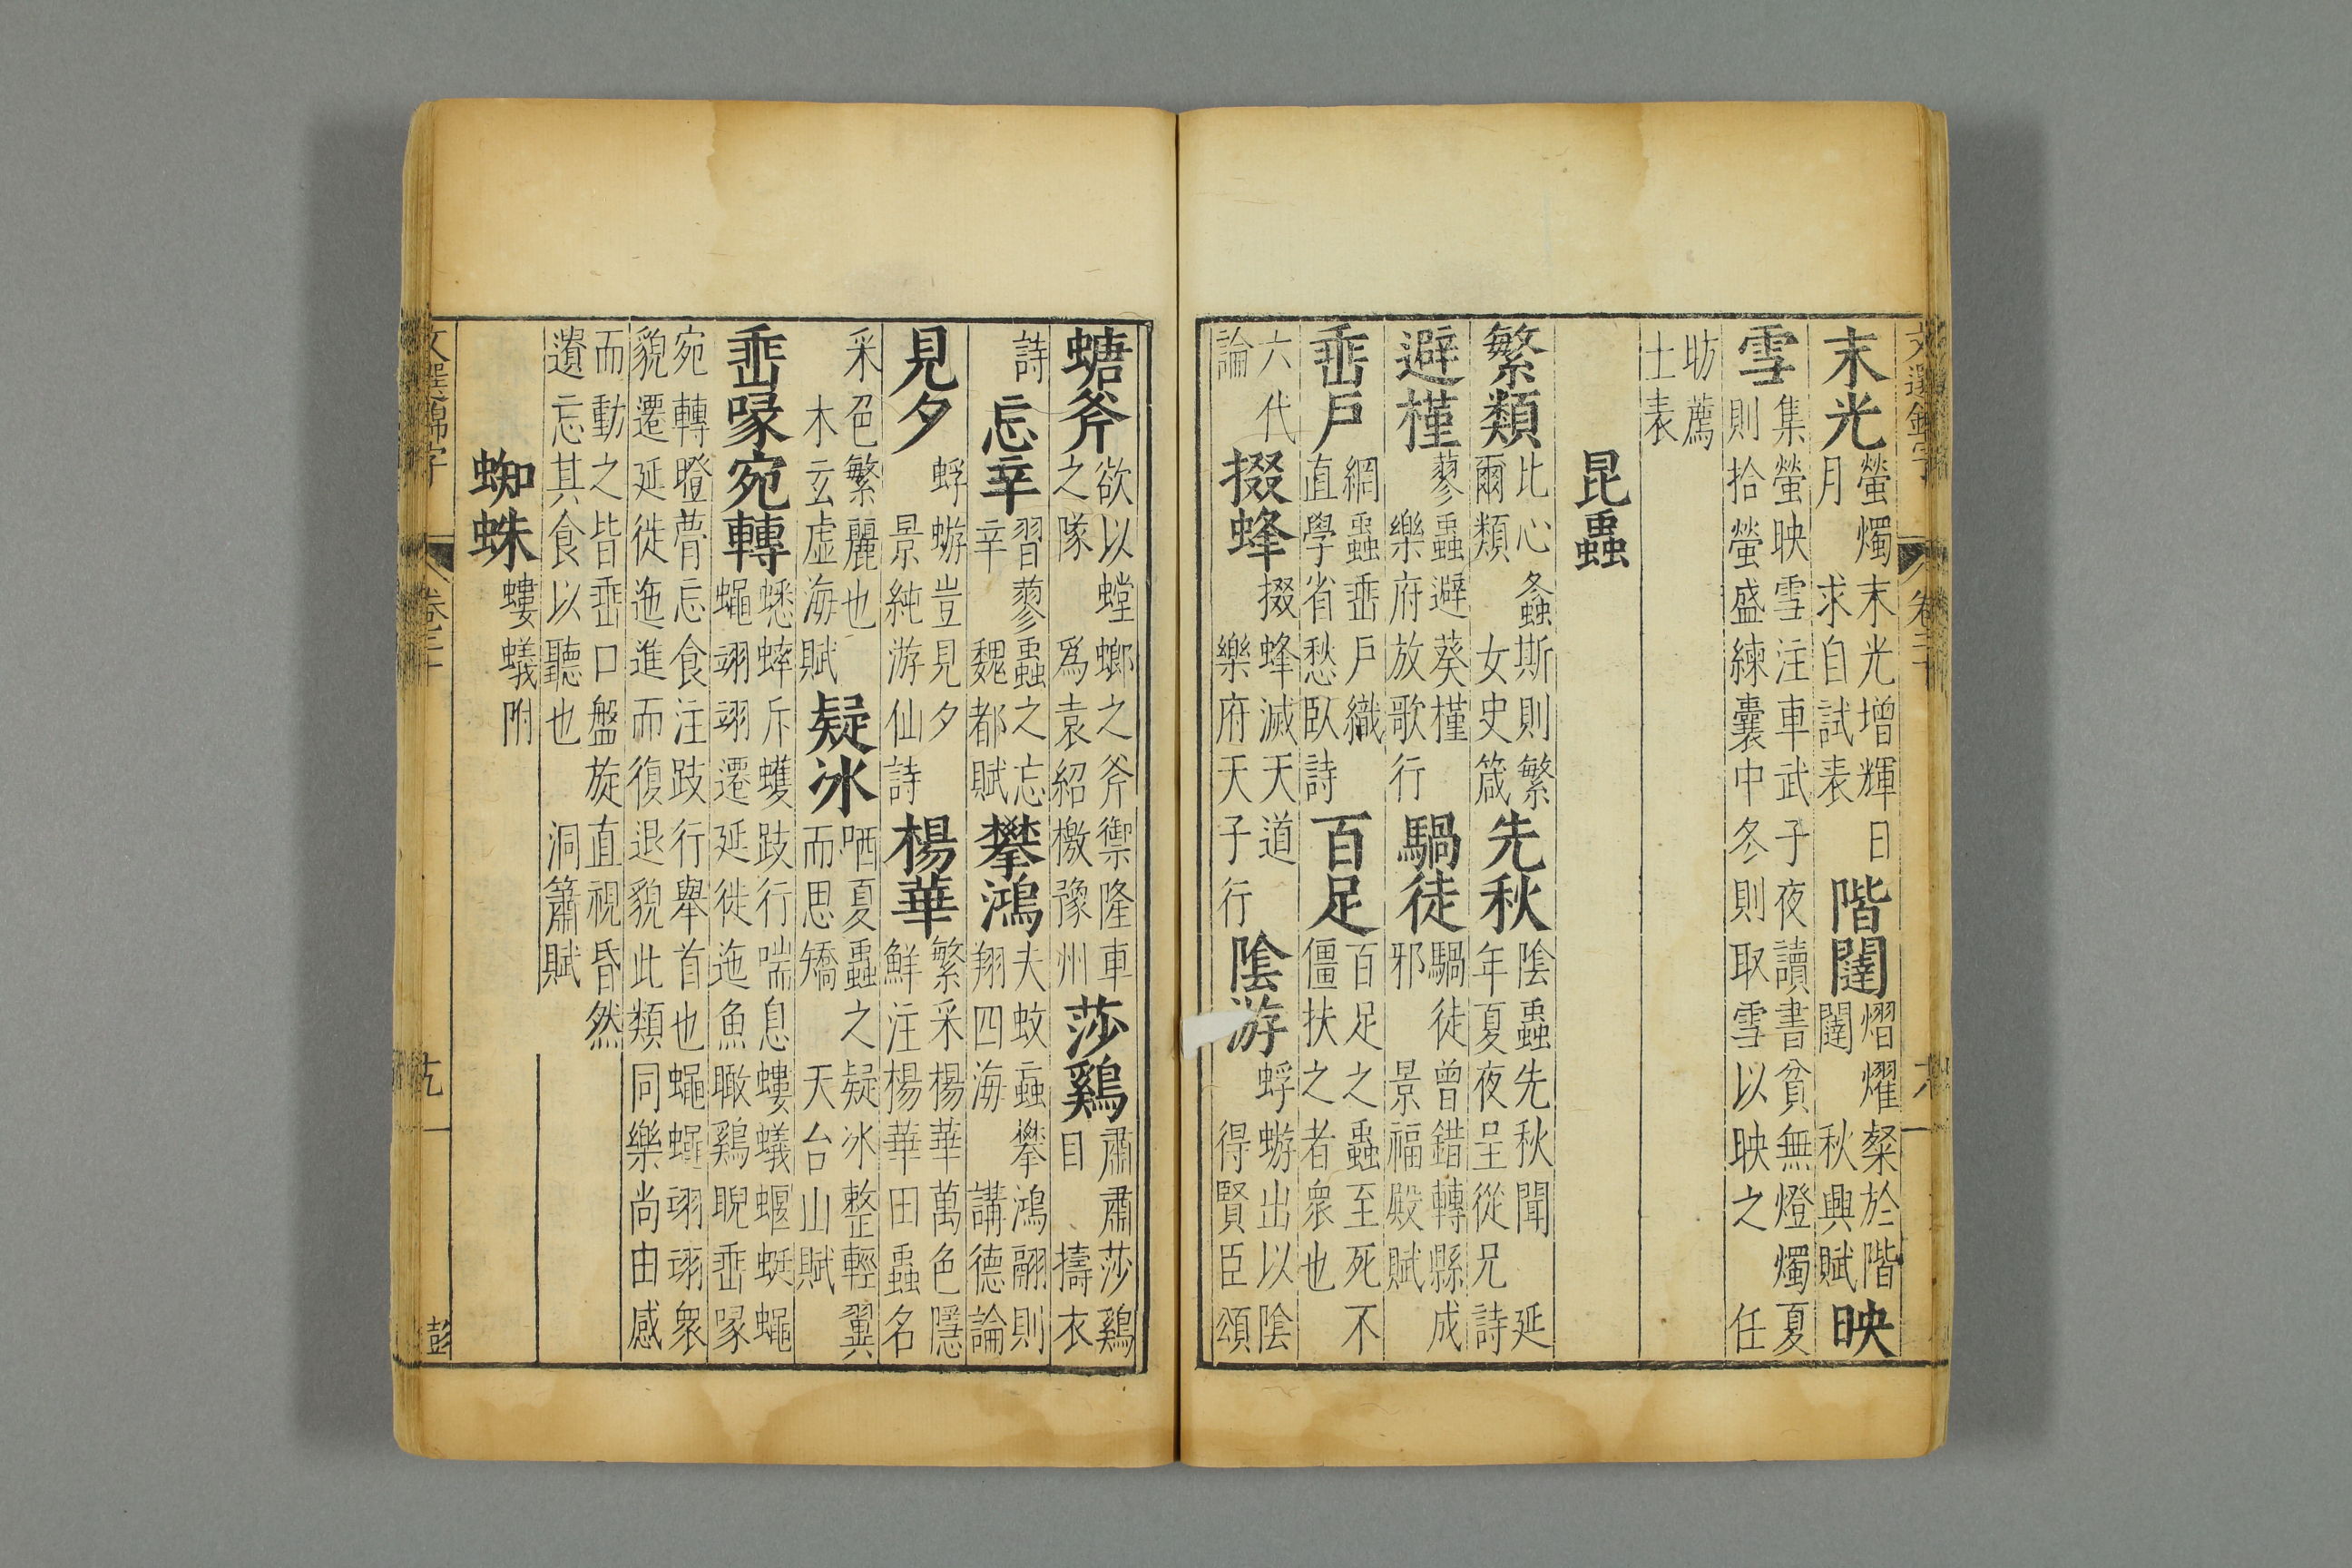 文選錦字 卷二十
末光 螢燭末光增輝日月 求自試表 階闥 熠燿粲於階闥 秋興賦 映
雪 集螢映雪注車武子夜讀書貧無燈燭夏則拾螢盛練囊中冬則取雪以映之 任
昉薦士表
昆蟲
繁類 比心螽斯則繁爾類 女史箴 先秋 陰蟲先秋聞 延年夏夜呈從兄詩
避槿 蓼蟲避葵槿 樂府放歌行 騧徒 騧徒曾錯轉縣成邪 景福殿賦
垂戶 網蟲垂戶織 直學省愁臥詩 百足 百足之蟲至死不僵扶之者衆也
六代論 掇蜂 掇蜂滅天道 樂府天子行 陰游 蜉蝣出以陰 得賢臣頌
螗斧 欲以螳螂之斧禦隆車之隊 爲袁紹檄豫州 莎鷄 肅肅莎鷄 目 擣衣
詩 忘辛 習蓼蟲之忘辛 魏都賦 攀鴻 夫蚊蝱攀鴻翮則翔四海 講德論
見夕 蜉蝣豈見夕 景純游仙詩 楊華 繁采楊華萬色隱鮮注楊華田蟲名
采色繁麗也 木玄虛海賦 疑冰 哂夏蟲之疑冰整輕翼而思矯 天台山賦
垂喙宛轉 蟋蟀斥蠖跂行喘息螻蟻蝘蜓蠅蠅翊翊遷延徙迤魚瞰鷄睨垂喙
宛轉瞪瞢忘食注跂行舉首也蠅蠅翊翊衆貌遷延徙迤進而復退貌此類同樂尚由感
而動之皆垂口盤旋直視昏然遺忘其食以聽也 洞簫賦
蜘蛛 螻蟻附
文選錦字 卷二十 彭